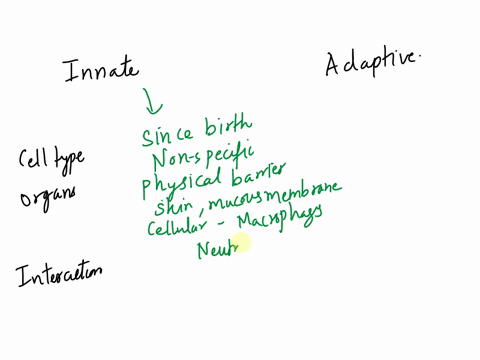 Innate
Adaptive.
Since birth
Non-specific
Cell type
physical barrier
organs
skin, mucous membrane
Cellular - Macrophags
Neutr
Interaction